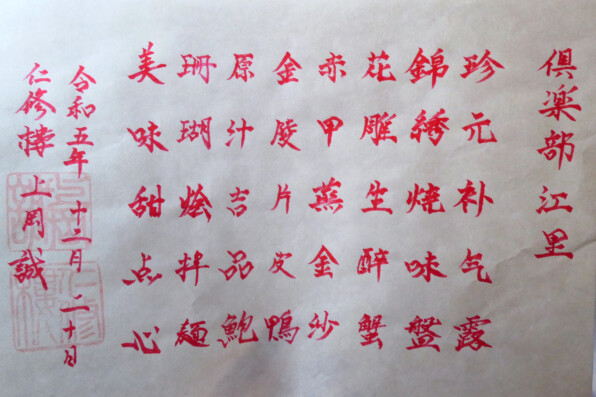 倶楽部江里
珍元补气露
錦绣焼味盤
花雕生酔蟹
赤甲蒸金沙
金陵片皮鴨
原汁吉品鮑
珊瑚烩拌麺
美味甜点心
令和五年十二月二十日
仁修樓上岡誠